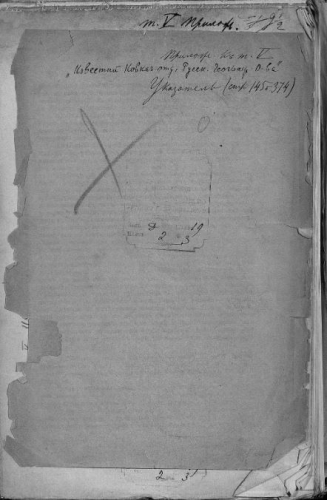 т. V Прилож.
Прилож. къ т. V
„Известий Кавказ. отд. Русск. Географ. О-ва"
Указатель (стр. 145-374)
2 3
2 3